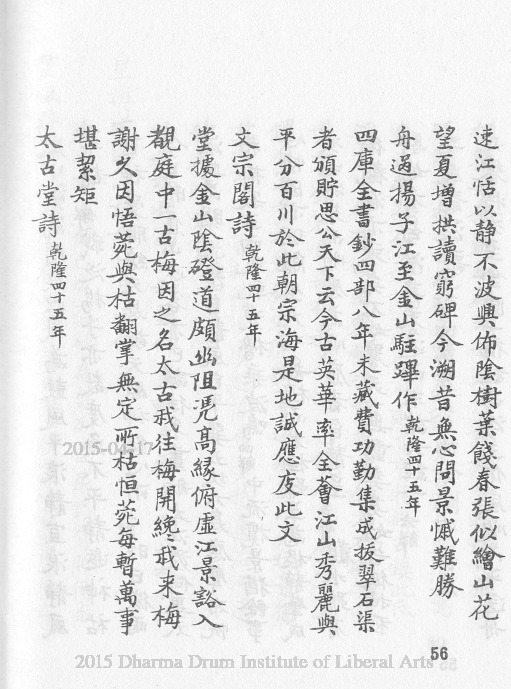 速江恬以静不波興佈陰樹葉餞春張似繪山花
望夏增拱讀窮碑今溯昔無心問景慽難勝
舟過揚子江至金山駐蹕作 乾隆四十五年
四庫全書鈔四部八年未蕆費功勤集成拔翠石渠
者頒貯思公天下云今古英華率全薈江山秀麗與
平分百川於此朝宗海是地誠應庋此文
文宗閣詩 乾隆四十五年
堂據金山陰磴道頗幽阻凭高緣俯虛江景豁入
覩庭中一古梅因之名太古我往梅開纔我来梅
謝久因悟菀與枯翻掌無定所枯恒菀每暫萬事
堪絜矩
太古堂詩 乾隆四十五年
56
2015-04-17
2015 Dharma Drum Institute of Liberal Arts